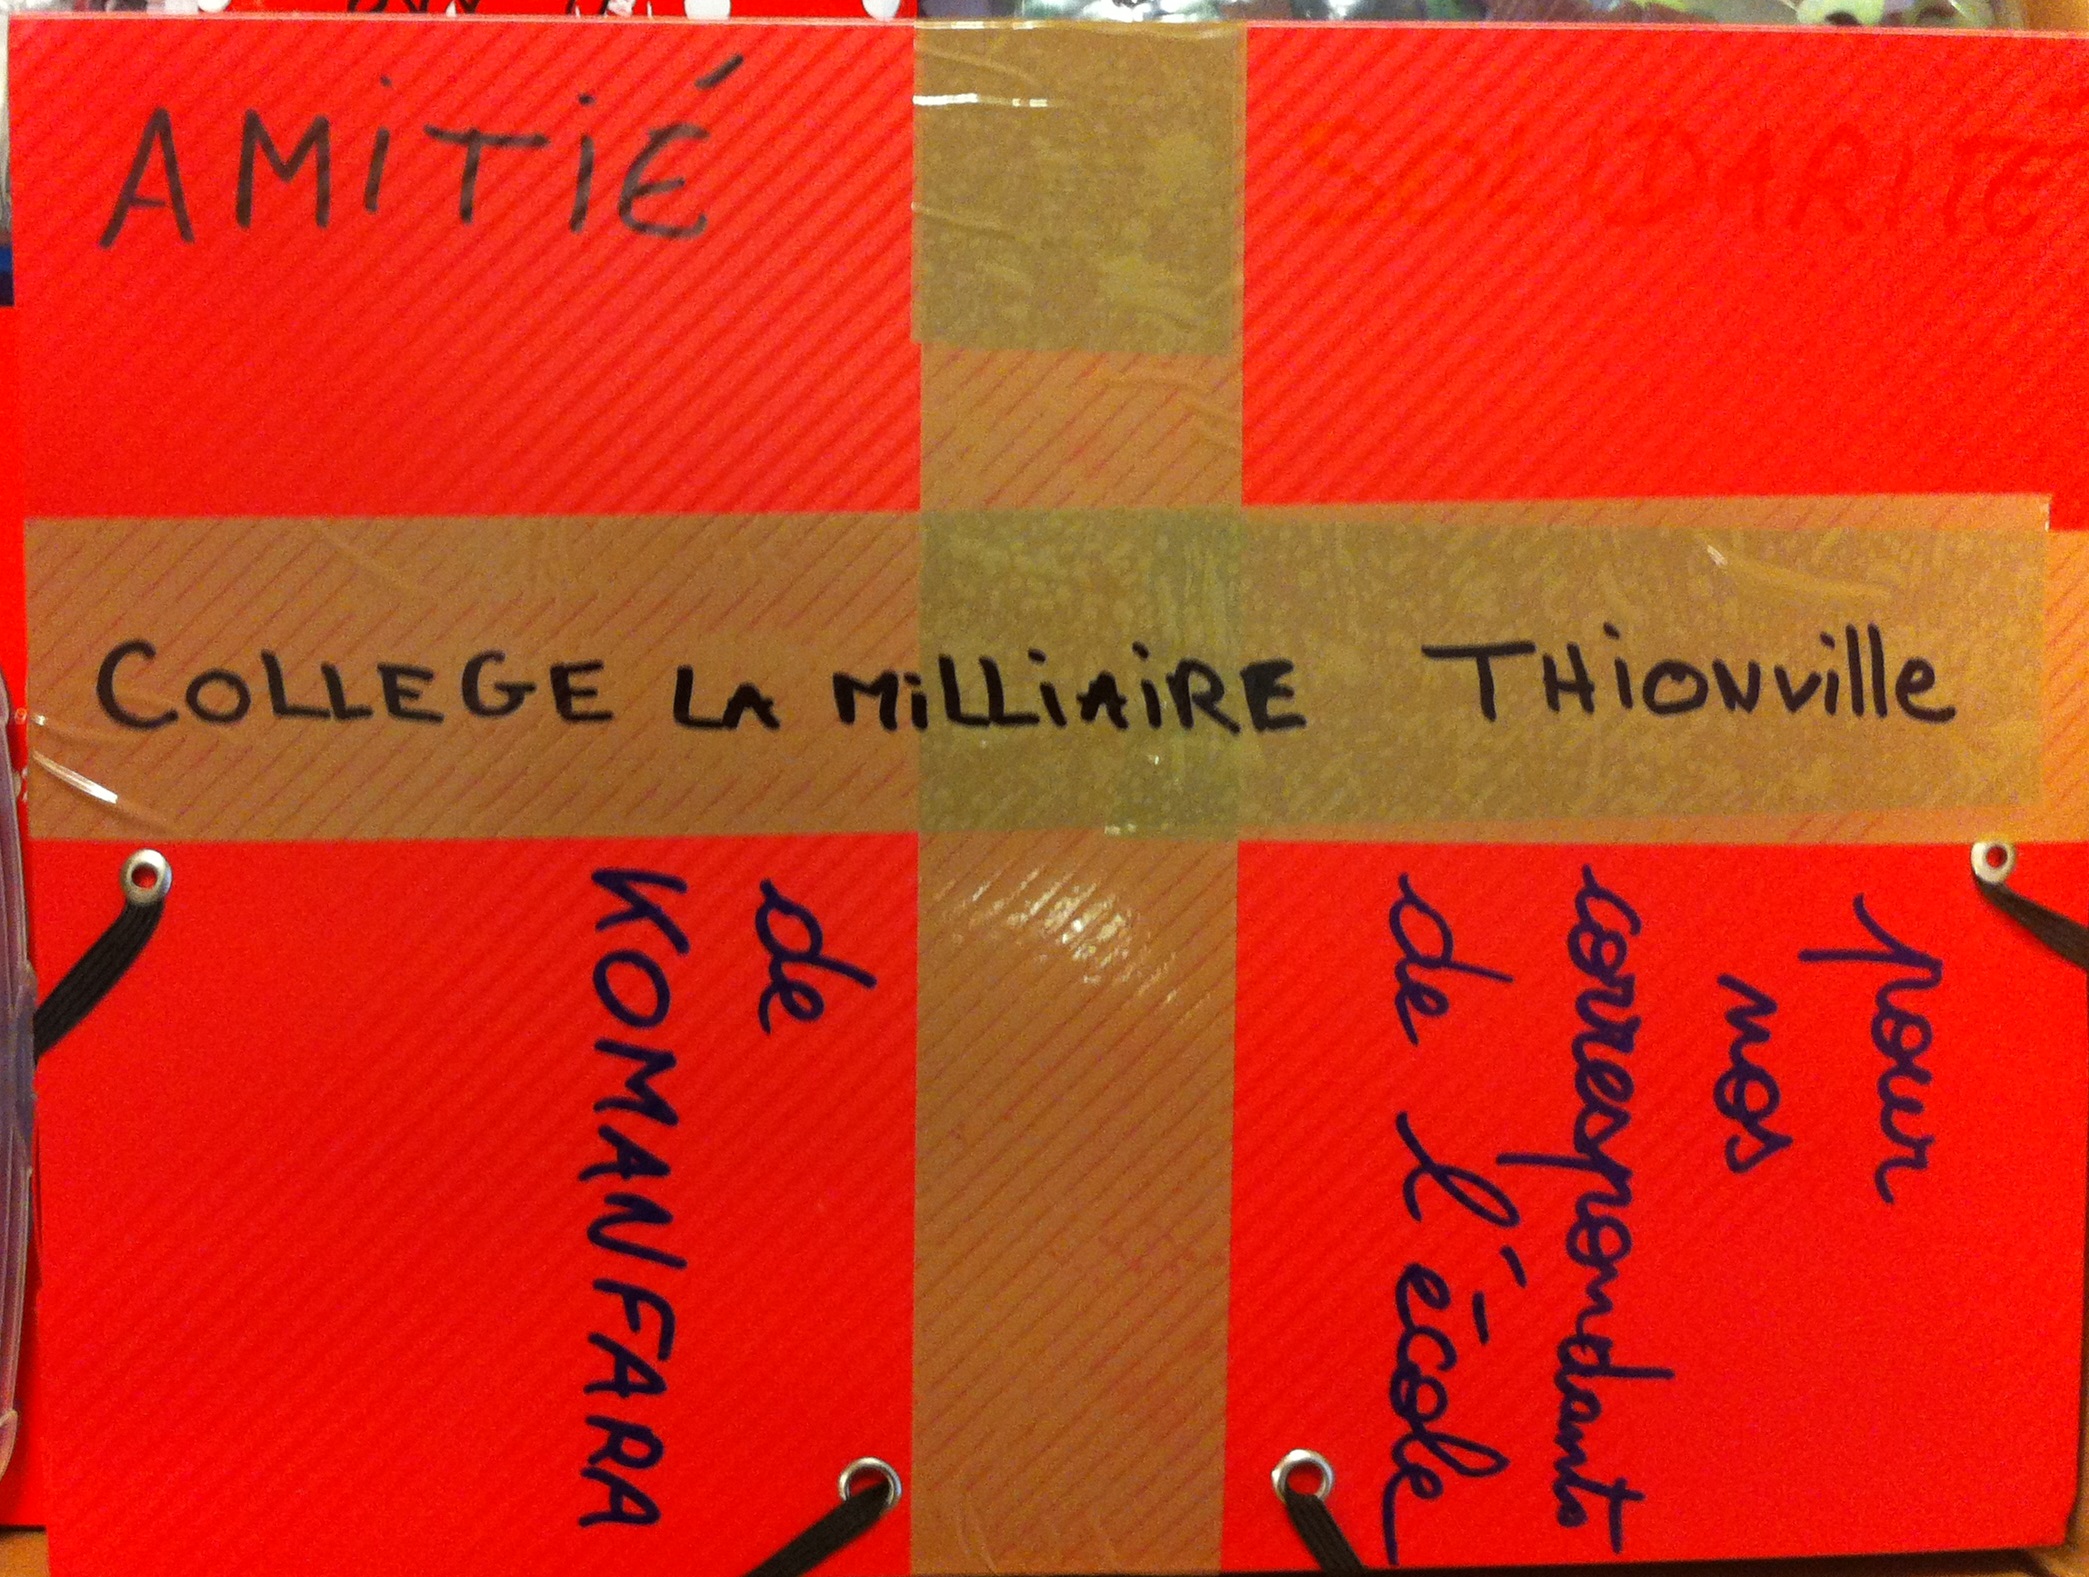 AMiTiÉ
SOLIDARITÉ
COLLEGE LA MiLLiAiRE THiONville
pour
nos
correspondants
de l'école
de
KOMANFARA